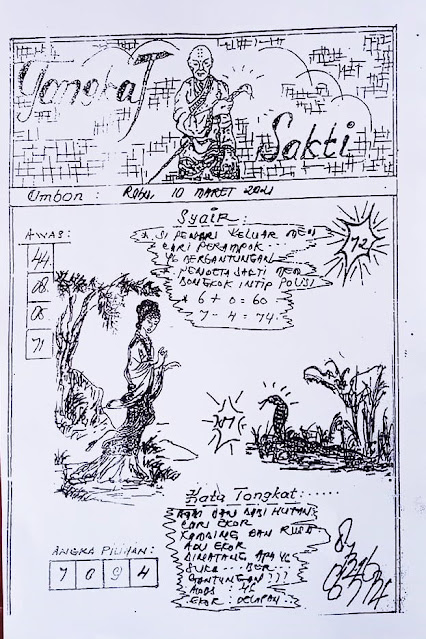 Tongkat
Sakti
Ombon: RABU, 10 MARET 2021
Syair:
* SI PENARI KELUAR MEN
CARI PERAMPOK...
YG BERGANTUNGAN
* PENDETA SAKTI MEN
BONGKOK INTIP POLISI
* 6 + 0 = 60
7 - 4 = 74
72
AWAS:
44
08
06
71
Kata Tongkat:.....
AYAM DAN BABI HUTAN
CARI EKOR
KAMBING DAN RUSA
ADU EKOR
BINATANG APA YG
SUKA...BER
GANTUNGAN???
EKOR DELAPAN
ANGKA PILIHAN:
7 0 9 4